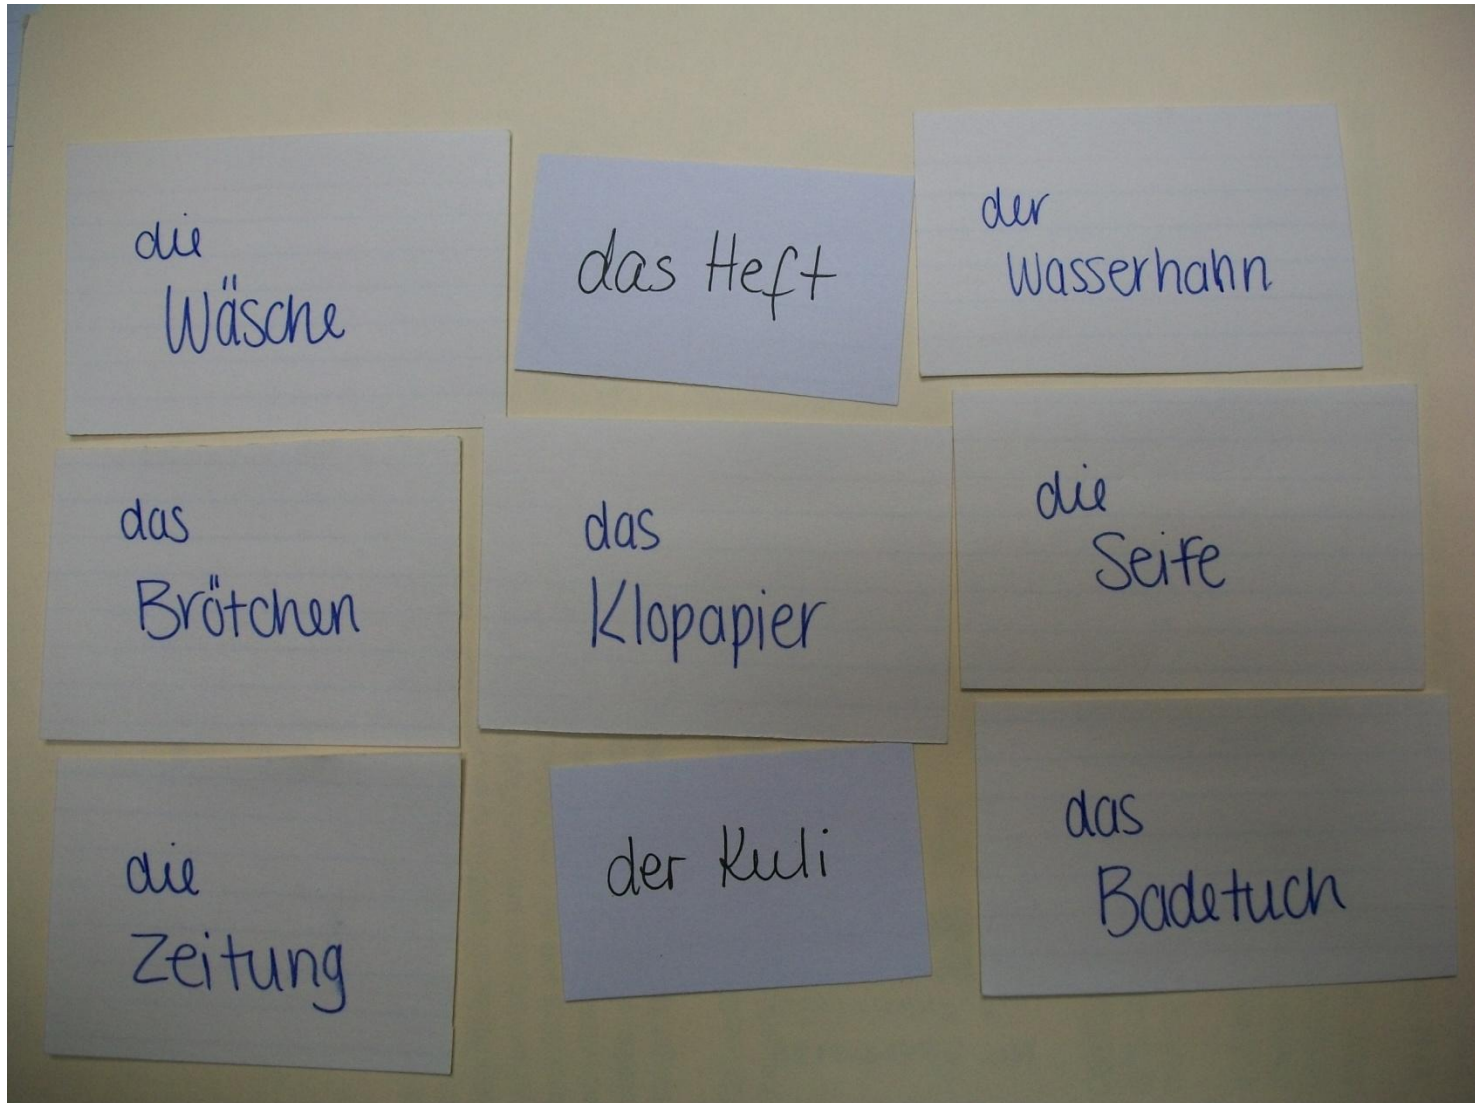 die
Wäsche
das Heft
der
Wasserhahn
das
Brötchen
das
Klopapier
die
Seife
die
Zeitung
der Kuli
das
Badetuch